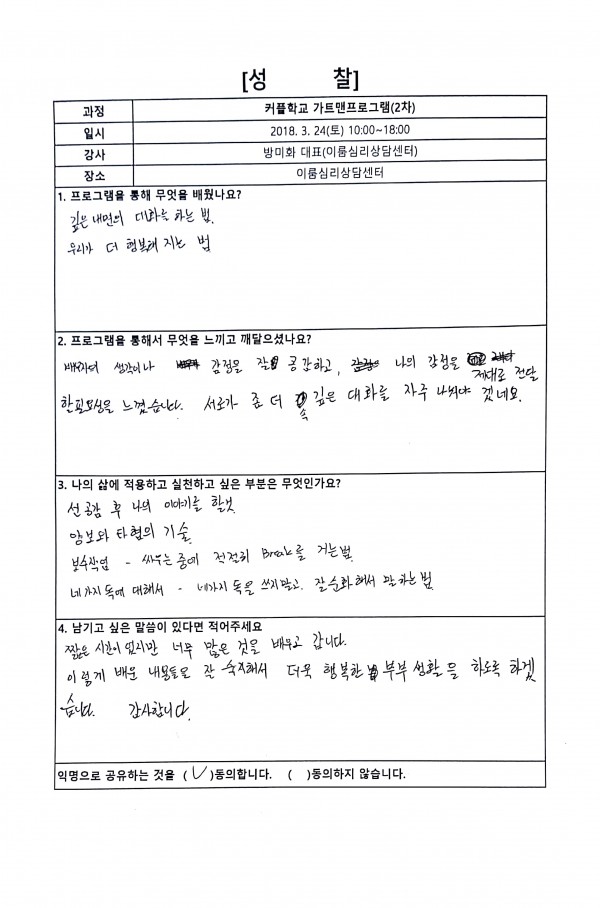 [성 찰]
과정 커플학교 가트맨프로그램(2차)
일시 2018. 3. 24(토) 10:00~18:00
강사 방미화 대표(이룸심리상담센터)
장소 이룸심리상담센터
1. 프로그램을 통해 무엇을 배웠나요?
깊은 내면의 대화를 하는 법.
우리가 더 행복해 지는 법
2. 프로그램을 통해서 무엇을 느끼고 깨달으셨나요?
배우자의 생각이나 감정을 잘 공감하고, 나의 감정을 제대로 전달
할 필요성을 느꼈습니다. 서로가 좀 더 속 깊은 대화를 자주 나눠야 겠네요.
3. 나의 삶에 적용하고 실천하고 싶은 부분은 무엇인가요?
선 공감 후 나의 이야기를 할것
양보와 타협의 기술
보수작업 - 싸우는 중에 적절히 Break를 거는법.
네가지 독에 대해서 - 네가지 독을 쓰지말고. 잘 순화해서 말하는 법.
4. 남기고 싶은 말씀이 있다면 적어주세요
짧은 시간이 었지만 너무 많은 것을 배우고 갑니다.
이렇게 배운 내용들로 잘 숙지해서 더욱 행복한 부부 생활 을 하도록 하겠
습니다. 감사합니다.
익명으로 공유하는 것을 (✓)동의합니다. ( )동의하지 않습니다.